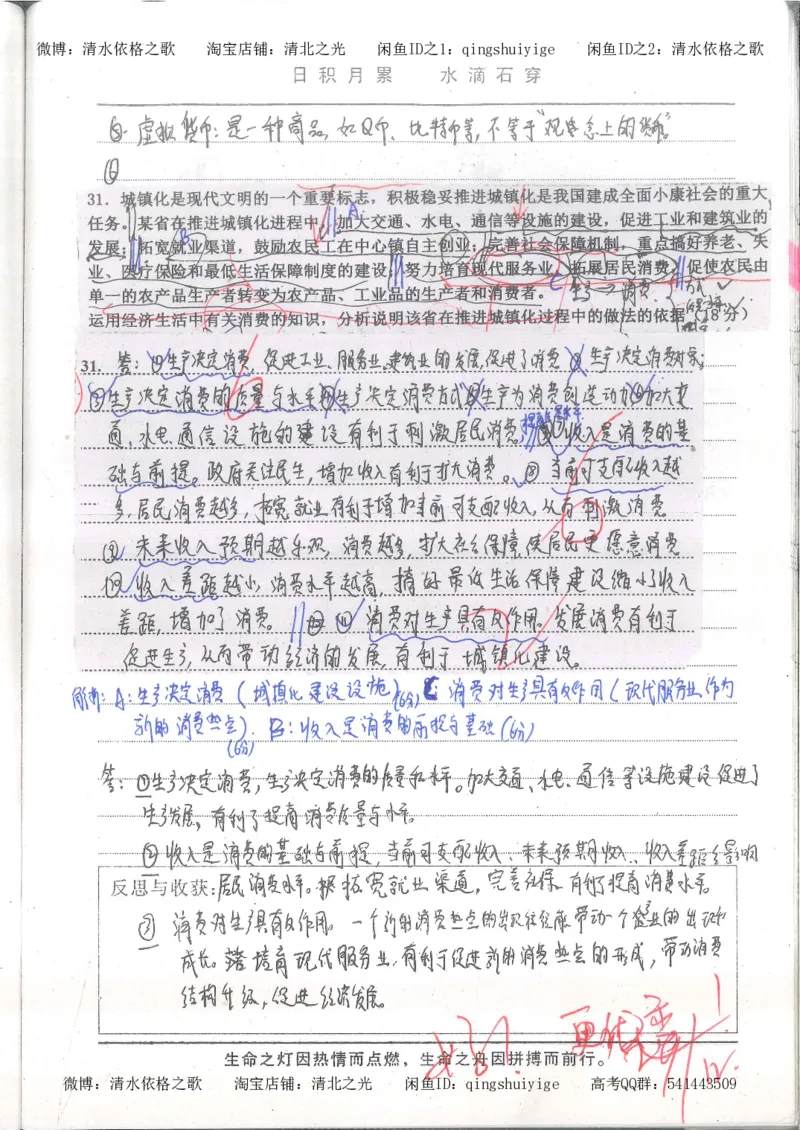 微博：清水依格之歌 淘宝店铺：清北之光 闲鱼ID之1：qingshuiyige 闲鱼ID之2：清水依格之歌
日积月累 水滴石穿
⑤ 虚拟货币：是一种商品，如Q币、比特币等，不等于"观念上的货币"。
⑥
31．城镇化是现代文明的一个重要标志，积极稳妥推进城镇化是我国建成全面小康社会的重大
任务。某省在推进城镇化进程中，加大交通、水电、通信等设施的建设，促进工业和建筑业的
发展；拓宽就业渠道，鼓励农民工在中心镇自主创业；完善社会保障机制，重点搞好养老、失
业、医疗保险和最低生活保障制度的建设；努力培育现代服务业，拓展居民消费，促使农民由
单一的农产品生产者转变为农产品、工业品的生产者和消费者。
运用经济生活中有关消费的知识，分析说明该省在推进城镇化过程中的做法的依据。（18分）
31. 答：①生产决定消费，促进工业、服务业、建筑业的发展，促进了消费 ②生产决定消费对象；
③生产决定消费的质量与水平 生产决定消费方式 生产为消费创造动力 加大交
通、水电、通信设施的建设有利于刺激居民消费； 收入是消费的基
础与前提。政府关注民生，增加收入有利于扩大消费。 当前可支配收入越
多，居民消费越多，拓宽就业有利于增加当前可支配收入，从而刺激消费
未来收入预期越乐观，消费越多，扩大社会保障，使居民更愿意消费
收入差距越小，消费水平越高，搞好最低生活保障建设缩小了收入
差距，增加了消费。 消费对生产具有反作用。发展消费有利于
促进生产，从而带动经济的发展，有利于城镇化建设。
A：生产决定消费（城镇化建设设施）(6分) C：消费对生产具有反作用（现代服务业作为
新的消费热点）．B：收入是消费的前提与基础（6分）
(6分)
答：①生产决定消费，生产决定消费的质量和水平。加大交通、水电、通信等设施建设促进了
生产发展，有利于提高消费质量与水平。
②收入是消费的基础与前提，当前可支配收入、未来预期收入、收入差距会影响
反思与收获：居民消费水平。拓宽就业渠道，完善社保有利于提高消费水平。
③ 消费对生产具有反作用。一个新的消费热点的出现往往能带动一个企业的出现和
成长。培育现代服务业，有利于促进新的消费热点的形成，带动消费
结构升级，促进经济发展。
生命之灯因热情而点燃，生命之舟因拼搏而前行。
微博：清水依格之歌 淘宝店铺：清北之光 闲鱼ID：qingshuiyige 高考QQ群：541443509